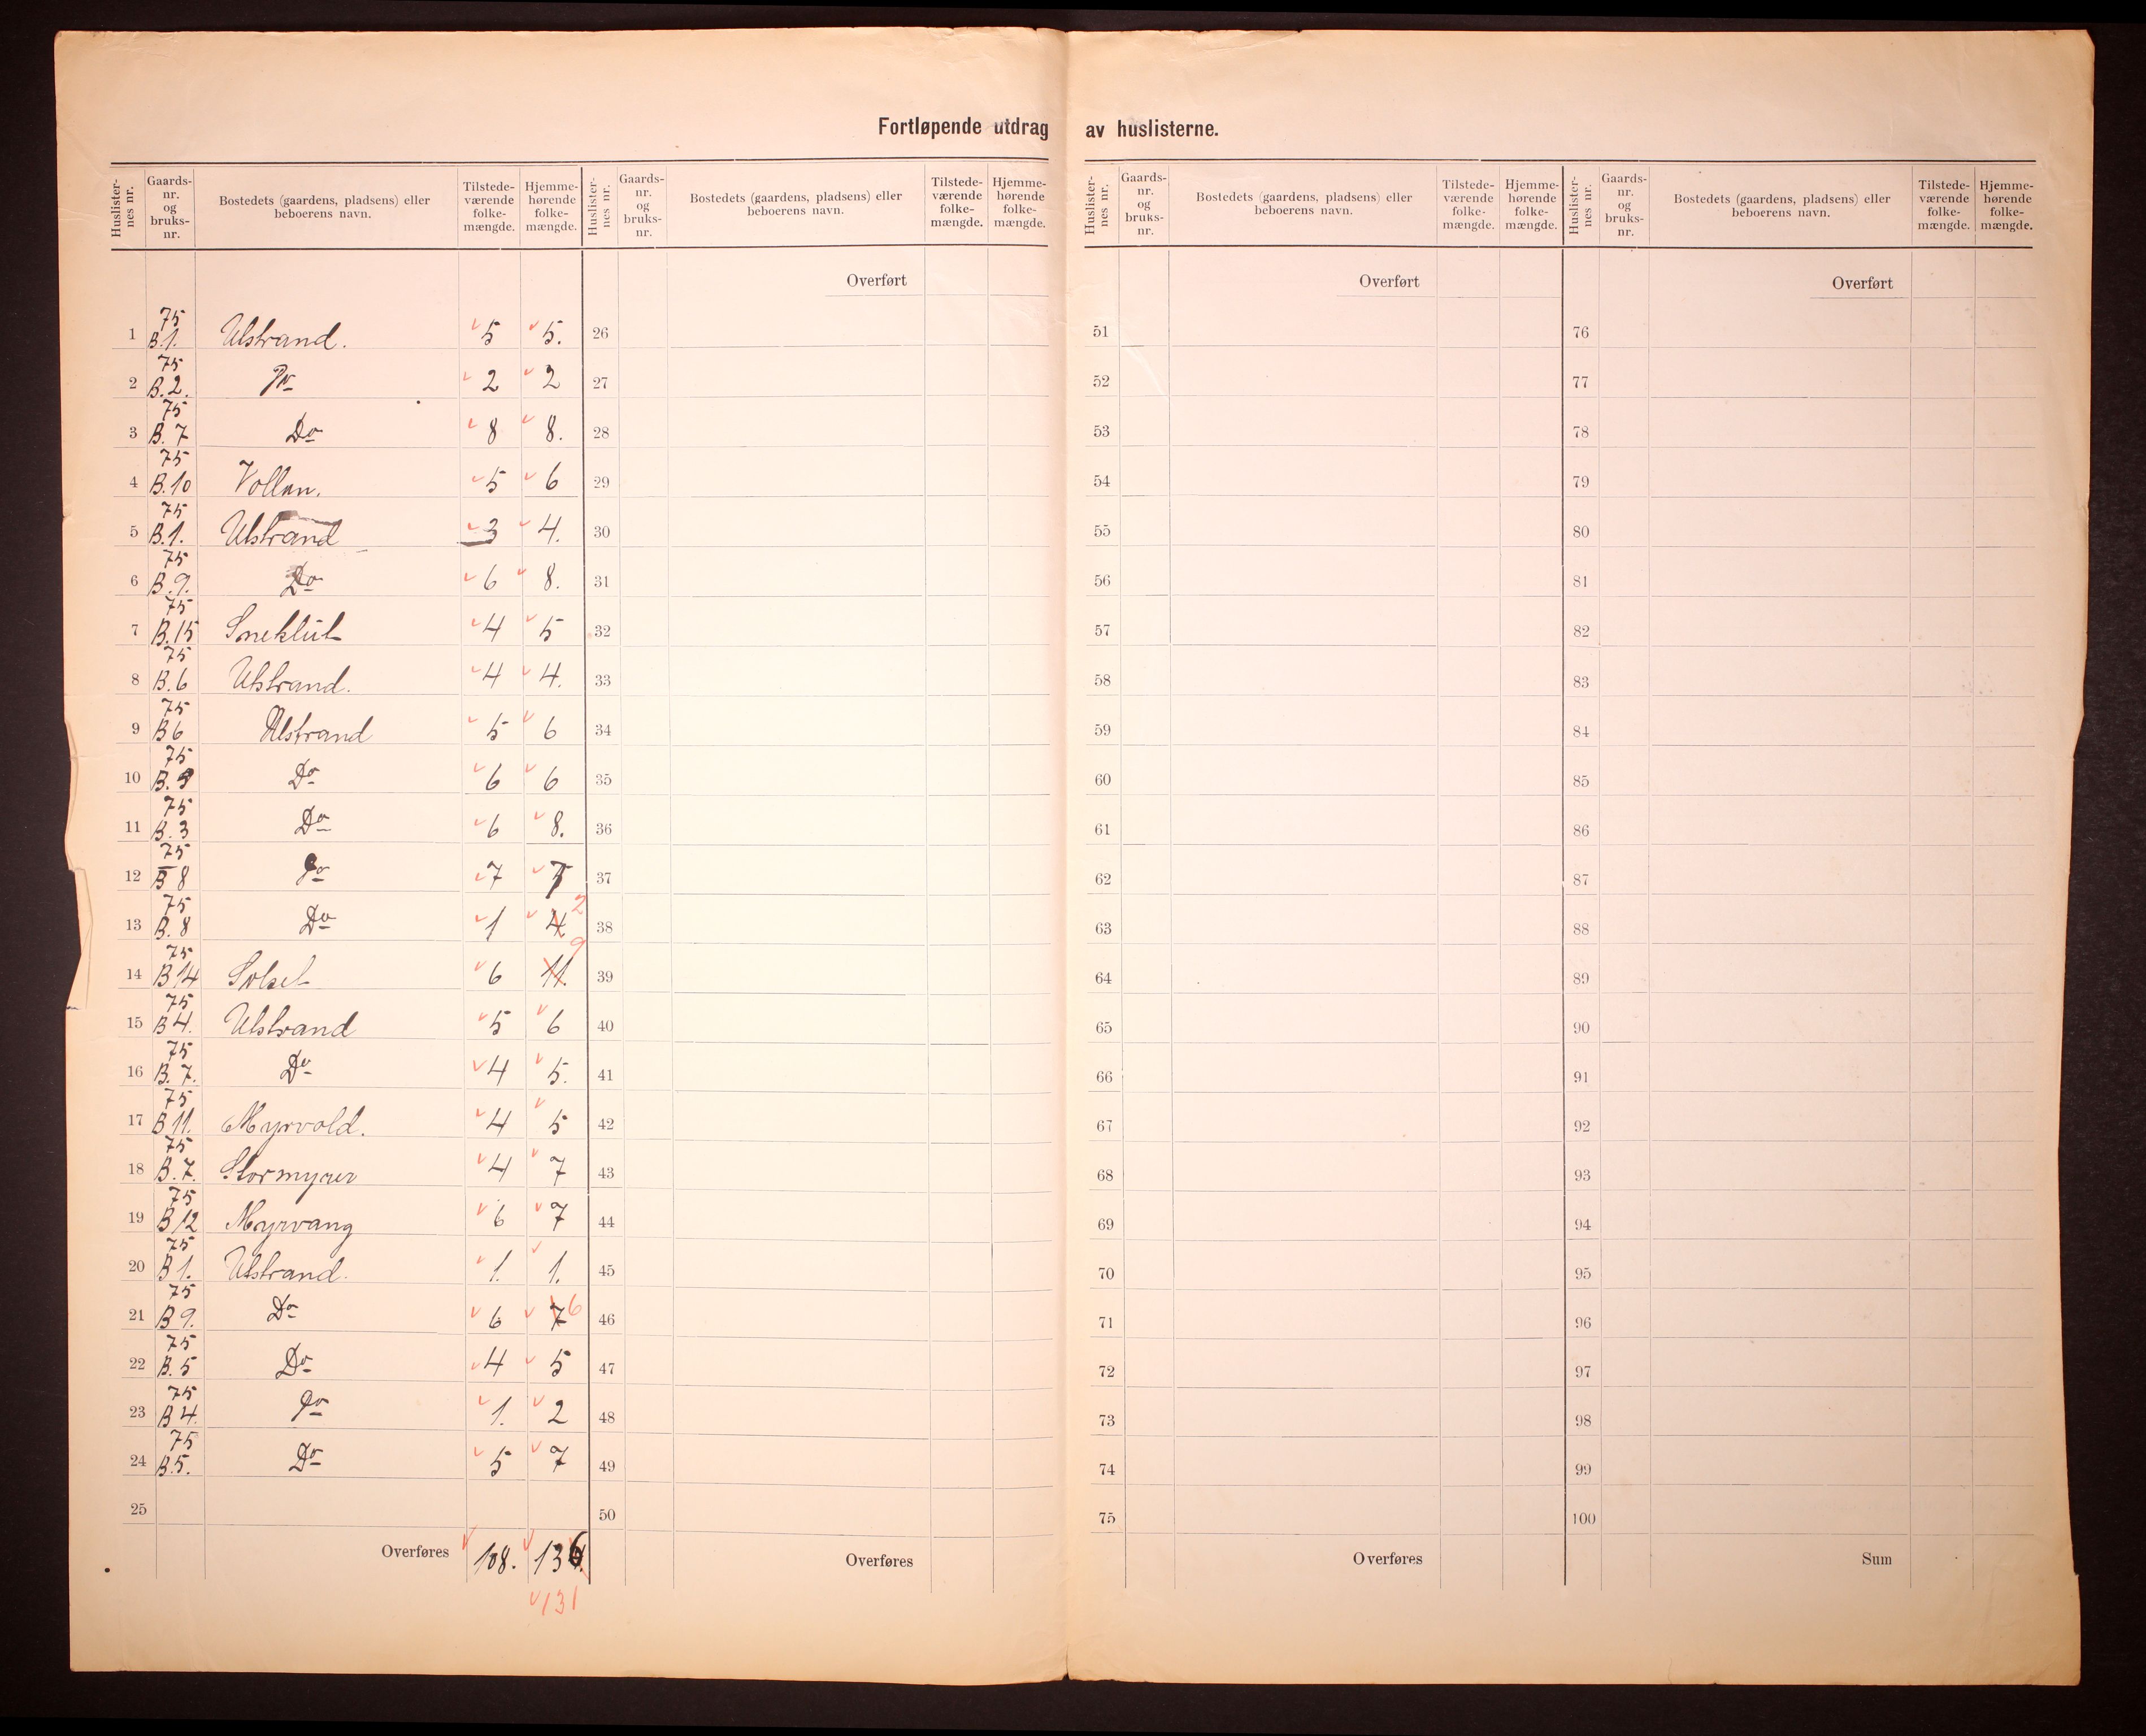 Fortløpende utdrag av huslisterne.
Huslister-nes nr. Gaards-nr. og bruks-nr. Bostedets (gaardens, pladsens) eller beboerens navn. Tilstede-værende folke-mængde. Hjemme-hørende folke-mængde.
1 75 B.1. Ulstrand. 5 5.
2 75 B.2. Do 2 2
3 75 B.7 Do 8 8.
4 75 B.10 Vollan. 5 6
5 75 B.1. Ulstrand 3 4.
6 75 B.9. Do 6 8.
7 75 B.15 Sneklüt 4 5
8 75 B.6 Ulstrand. 4 4.
9 75 B6 Ulstrand 5 6
10 75 B. Do 6 6
11 75 B.3 Do 6 8.
12 75 B 8 Do 7 7
13 75 B.8 Do 1 4 2
14 75 B14 Solset 6 11. 9
15 75 B4. Ulstrand 5 6
16 75 B.7. Do 4 5.
17 75 B11. Myrvold. 4 5
18 75 B.7. Stormyren 4 7
19 75 B12 Myrvang 6 7
20 75 B1. Ulstrand. 1. 1.
21 75 B9. Do 6 7 6
22 75 B.5 Do 4 5
23 75 B4. Do 1. 2
24 75 B.5. Do 5 7
25
Overføres 108. 136.
131
Huslister-nes nr. Gaards-nr. og bruks-nr. Bostedets (gaardens, pladsens) eller beboerens navn. Tilstede-værende folke-mængde. Hjemme-hørende folke-mængde.
Overført
26
27
28
29
30
31
32
33
34
35
36
37
38
39
40
41
42
43
44
45
46
47
48
49
50
Overføres
Huslister-nes nr. Gaards-nr. og bruks-nr. Bostedets (gaardens, pladsens) eller beboerens navn. Tilstede-værende folke-mængde. Hjemme-hørende folke-mængde.
Overført
51
52
53
54
55
56
57
58
59
60
61
62
63
64
65
66
67
68
69
70
71
72
73
74
75
Overføres
Huslister-nes nr. Gaards-nr. og bruks-nr. Bostedets (gaardens, pladsens) eller beboerens navn. Tilstede-værende folke-mængde. Hjemme-hørende folke-mængde.
Overført
76
77
78
79
80
81
82
83
84
85
86
87
88
89
90
91
92
93
94
95
96
97
98
99
100
Sum